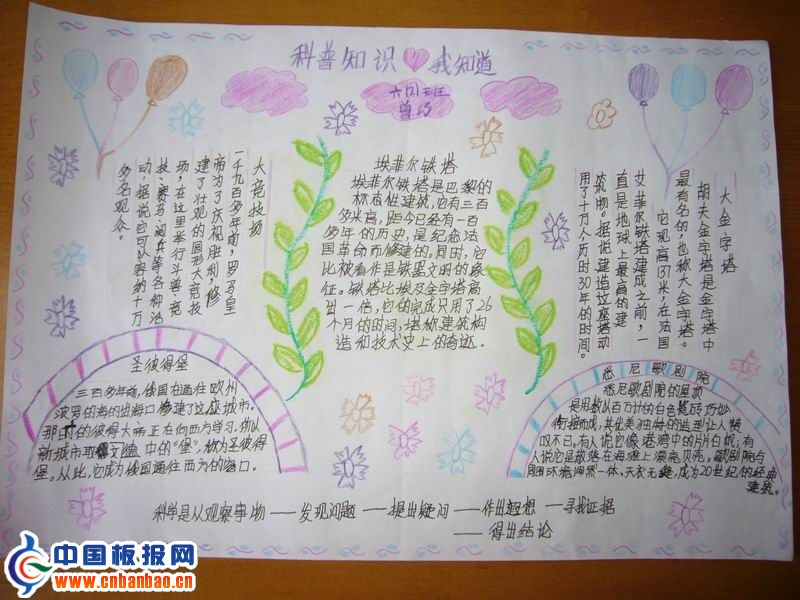 科普知识我知道
六(2)班
曾巧
大竞技场
一千九百多年前，罗马皇
帝为了庆祝胜利，修
建了壮观的圆形大竞技
场，在这里举行斗兽、竞
技、赛马、阅兵等各种活
动，据说它可以容纳十万
多名观众。
埃菲尔铁塔
埃菲尔铁塔是巴黎的
标志性建筑，它有三百
多米高，距今已经有一百
多年的历史，是纪念法
国革命而修建的。同时，它
比被看作是铁垩文明的象
征。铁塔比埃及金字塔高
出一倍，它的完成只用了26
个月的时间，堪称建筑构
造和技术史上的奇迹。
大金字塔
胡夫金字塔是金字塔中
最有名的，也称大金字塔。
它现高137米，在法国
艾菲尔铁塔建成之前，一
直是地球上最高的建
筑物。据说建造这座塔动
用了十万个人历时30年的时间。
圣彼得堡
三百多年前，俄国在通往欧洲
波罗的海的出海口修建了这座城市。
那时的彼得大帝正在向西方学习，所以
新城市取 中的“堡”，称为圣彼得
堡。从此，它成为俄国通往西方的窗口。
悉尼歌剧院
悉尼歌剧院的屋顶
是用数以百万计的白色瓷砖巧妙
衔接而成，其优美独特的造型让人赞
叹不已，有人说它像港湾中的片片白帆；有
人说它是散落在海滩上漂亮贝壳。歌剧院与
周围环境浑然一体、天衣无缝，成为20世纪的经典
建筑。
科学是从观察事物——发现问题——提出疑问——作出猜想——寻找证据
——得出结论
中国板报网
www.cnbanbao.cn